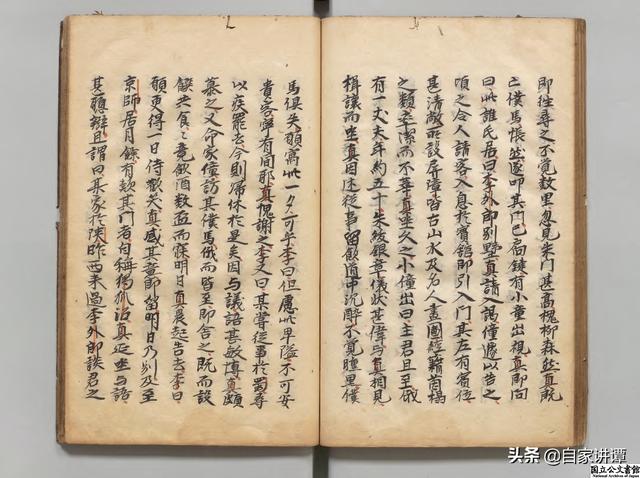 即往尋之不覺数里忽見朱門甚高槐柳森然真既
亡僕馬悵然遂叩其門已扃鍵有小童出視真即问
曰此誰氏居曰李外郎别墅真請入謁僮遽以告之
頃之令人請客入息於賓舘即引入門其左有賓位
甚清敞所設屏障皆古山水及名人畫圖經籍茵榻
之類率潔而不華真坐久之小僮出曰主君且至俄
有一丈夫年約五十朱紱銀章儀状甚偉与真相見
揖讓而坐真因述從事留飲道中沉醉不覺曛黒僕
馬俱失願寓此一夕可乎李曰但慮此卑隘不可安
貴客寧有间耶真愧謝之李又曰某嘗從事於蜀尋
以疾罷去今則歸休於是矣因与議語甚敏博真頗
慕之又命家僮訪其僕馬俄而皆至即舎之既而設
饌共食〻竟飲酒数盃而寐明日真晨起告去李曰
願更得一日侍歡笑真感其意即留明日乃别及至
京師居月餘有欵其門者自稱獨孤沼真延坐与語
甚聰辯且謂曰某家於陝昨西来過李外郎談君之
国立公文書館
National Archives of Japan
头条 @自家讲谭